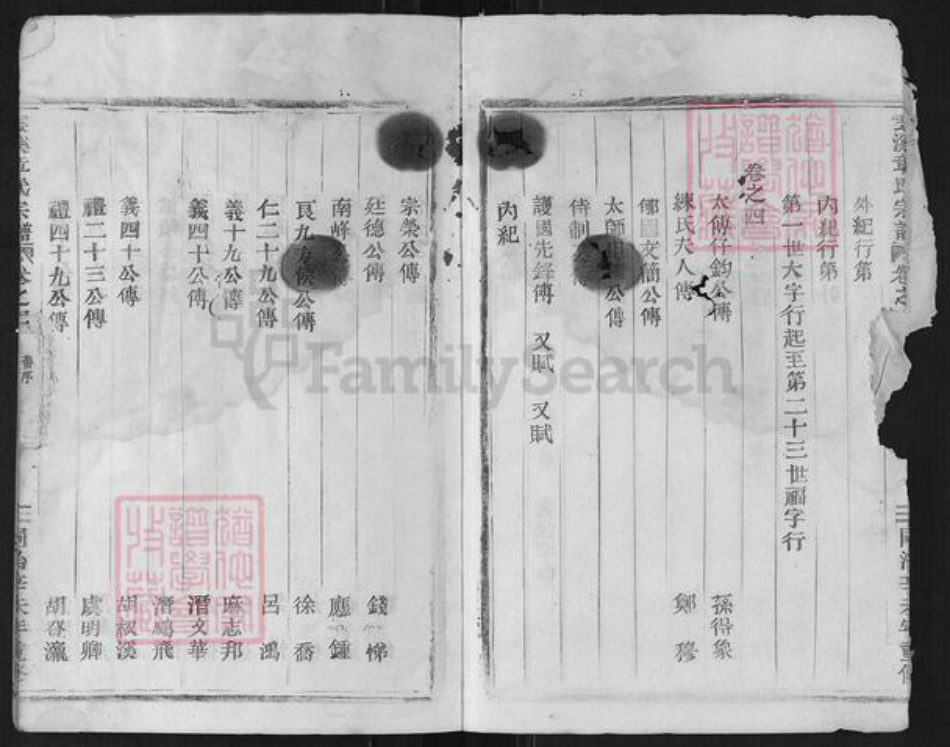 外紀行第
內紀行第
第一世大字行起至第二十三世福字行
卷之四
太傅仔鈞公傳 孫得象
練氏夫人傳 鄭穆
郇國文簡公傳
太師 公傳
侍制
護國先鋒傳 又賦 又賦
內紀
宗榮公傳
廷德公傳 錢悌
南峰 應 鍾
良九 侯公傳 徐喬
仁二十九公傳 呂鴻
義十九公傳 麻志邦
義四十公傳 潛文華
潛鵬飛
義四十公傳 胡椒溪
禮二十三公傳 虞明卿
禮四十九公傳 胡登瀛
章氏宗譜 卷之
同治辛未年重修
FamilySearch